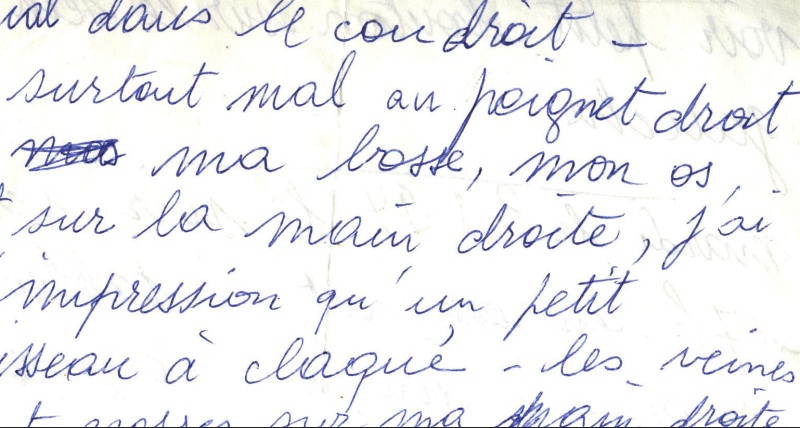 dans le cou droit -
surtout mal au poignet droit
ma bosse, mon os,
sur la main droite, j'ai
impression qu'un petit
isseau à claqué - les veines
sur ma main droite